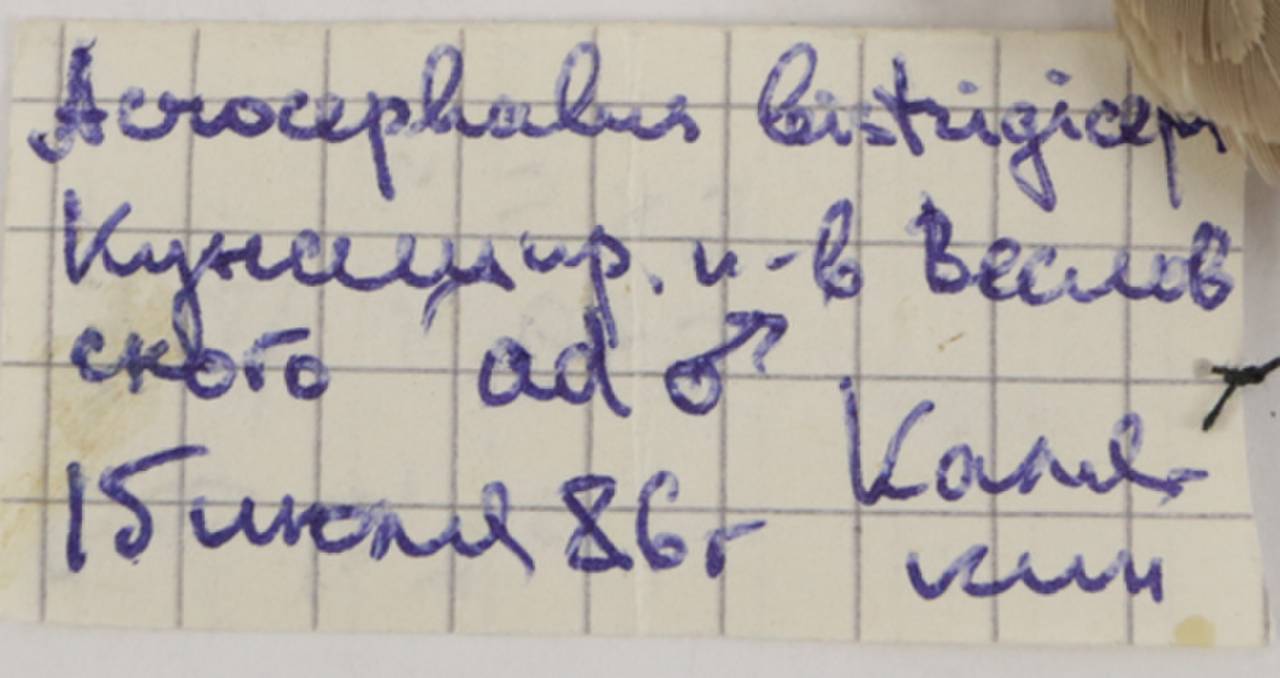 Acrocephalus bistrigiceps
Кунашир. п-в Веслов
ского ad ♂
Каля-
15 июля 86 г
кин